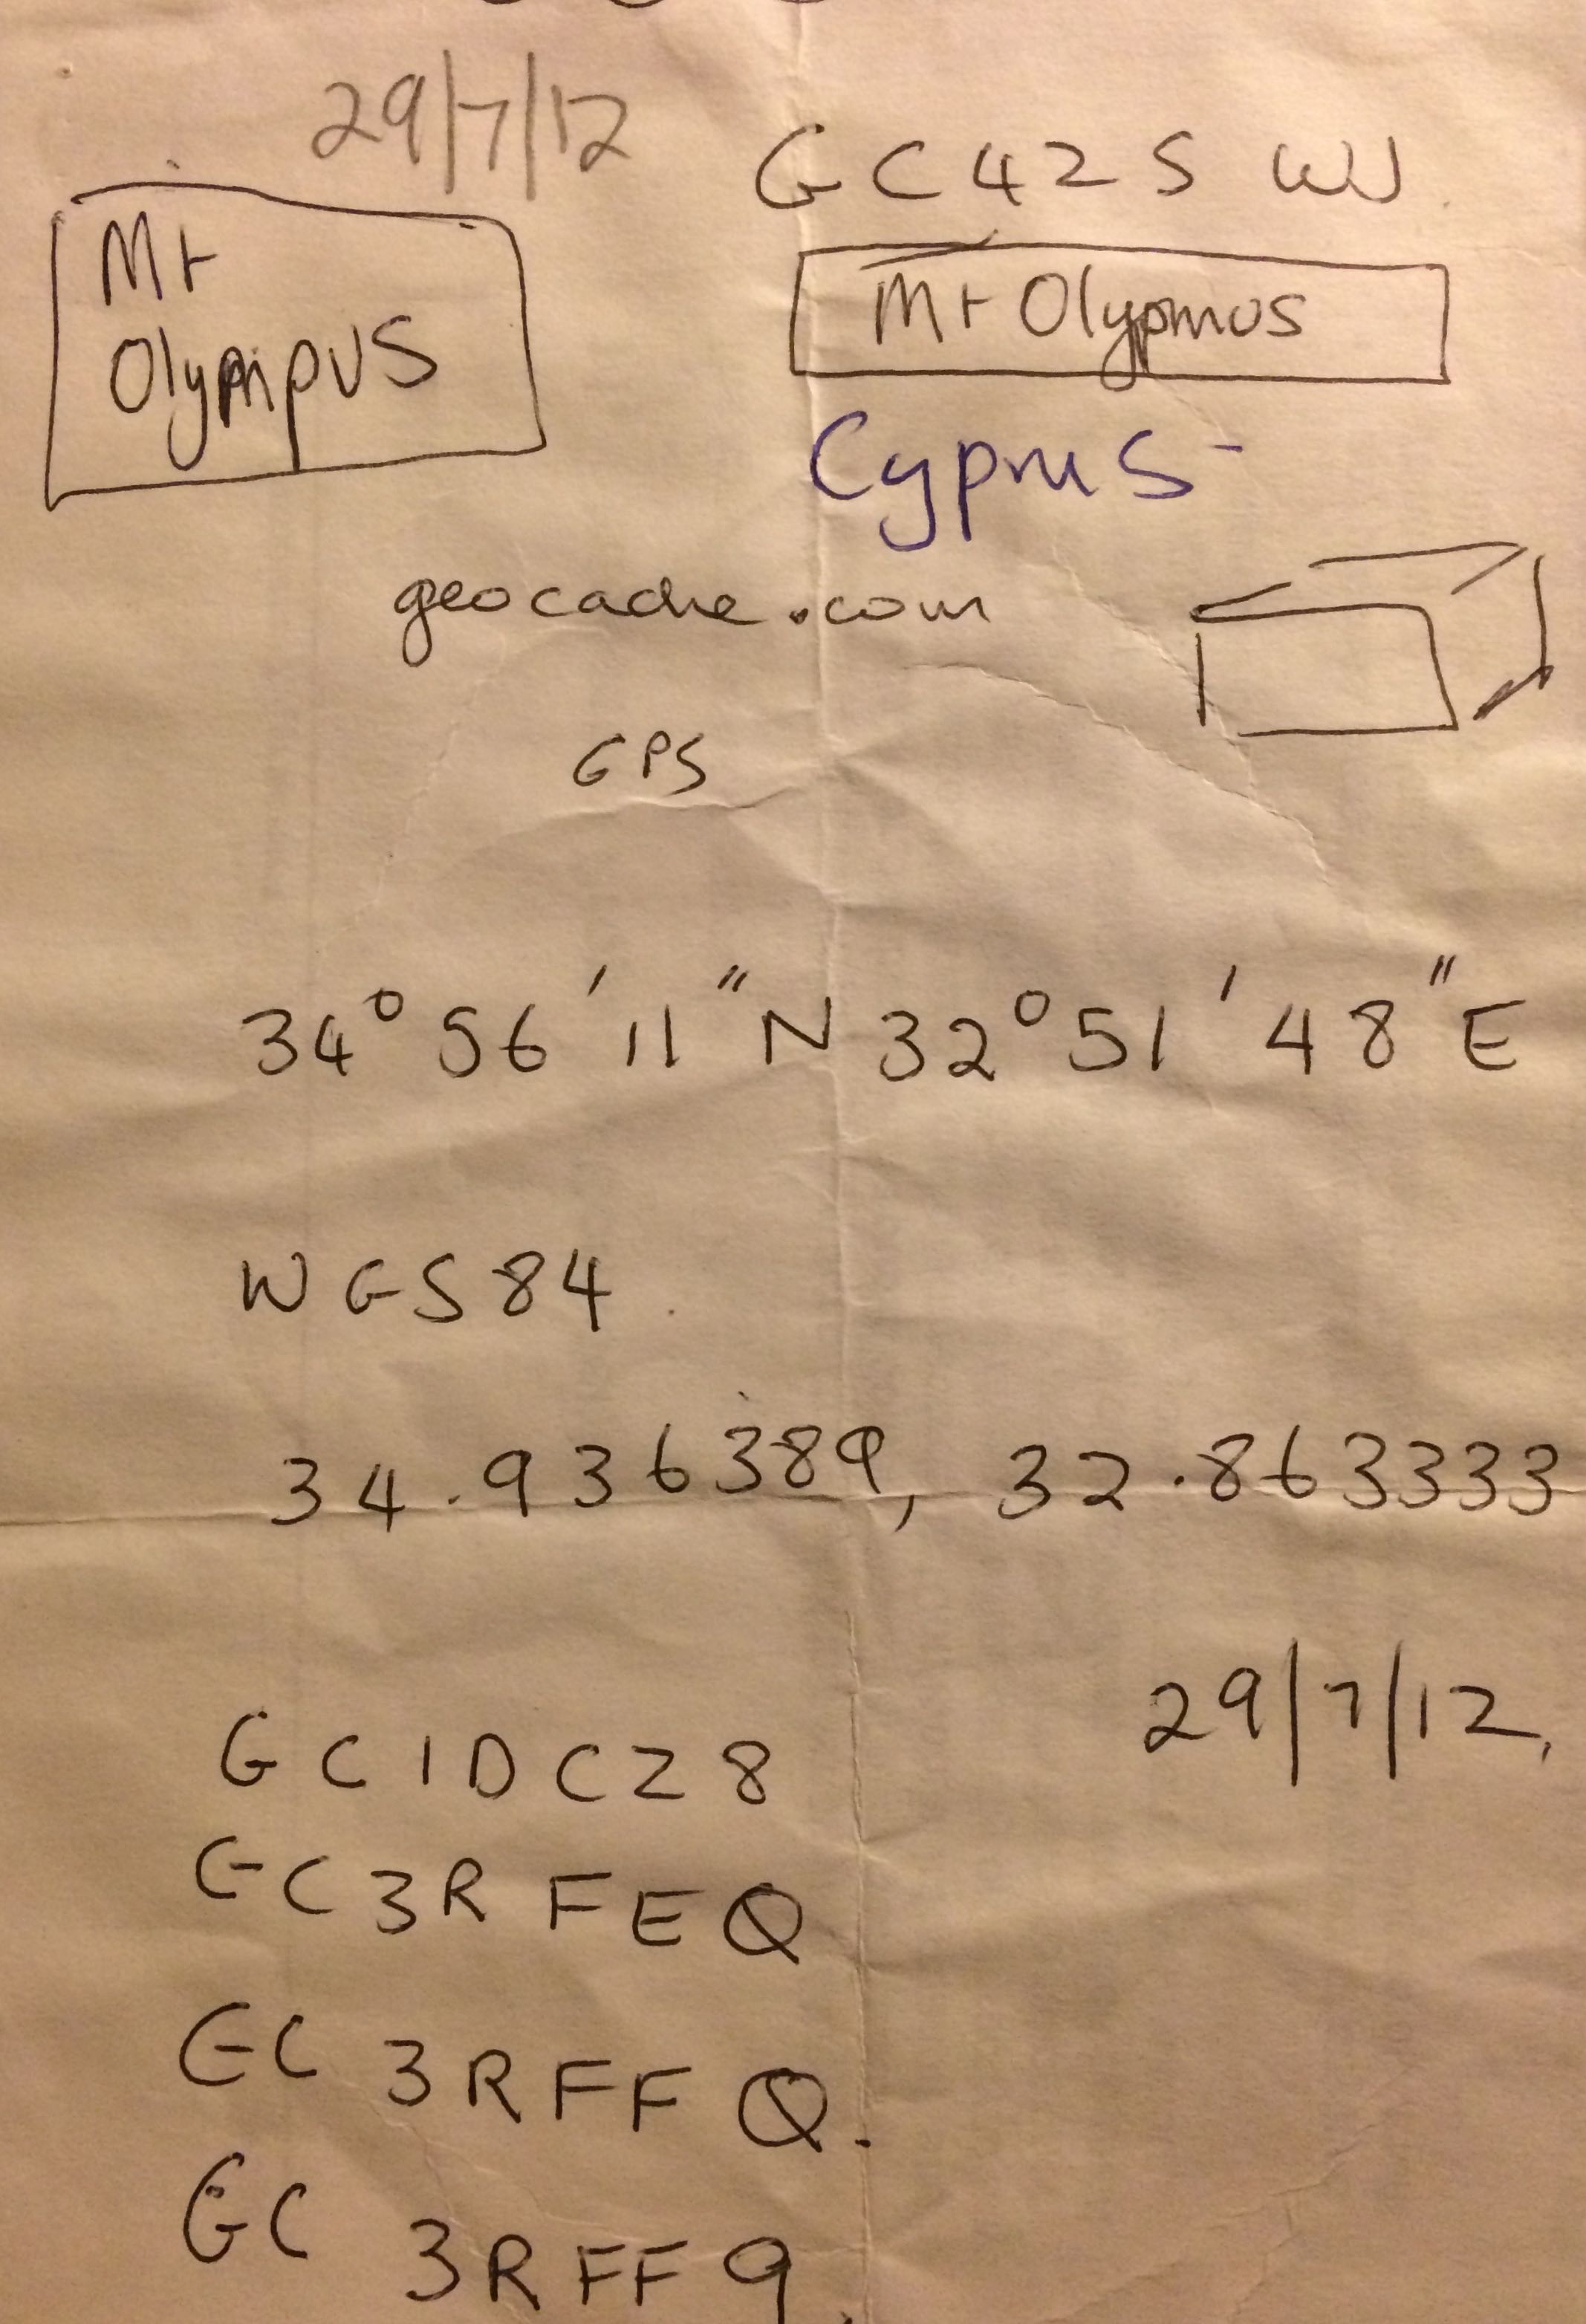 29/7/12
GC42SWJ
Mt
Olympus
Mt Olypmus
Cyprus
geocache.com
GPS
34° 56' 11" N 32° 51' 48" E
WGS84
34.936389, 32.863333
29/7/12
GC1DCZ8
GC3RFEQ
GC3RFFQ.
GC3RFF9